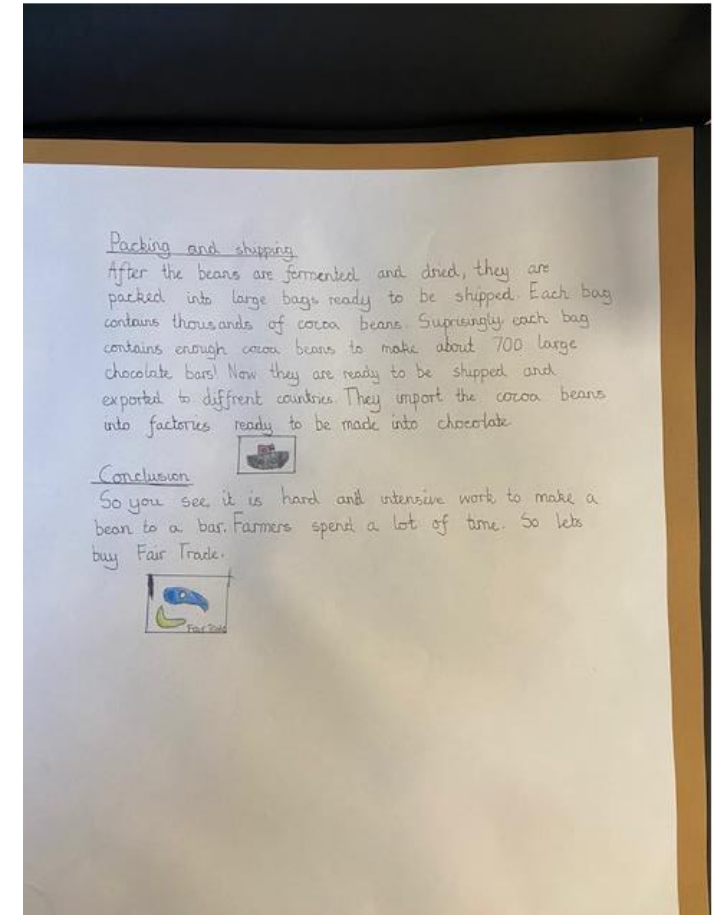 Packing and shipping
After the beans are fermented and dried, they are
packed into large bags ready to be shipped. Each bag
contains thousands of cocoa beans. Suprisingly each bag
contains enough cocoa beans to make about 700 large
chocolate bars! Now they are ready to be shipped and
exported to diffrent countries. They import the cocoa beans
into factories ready to be made into chocolate
Conclusion
So you see it is hard and intensive work to make a
bean to a bar. Farmers spend a lot of time. So lets
buy Fair Trade.
Fair Trade